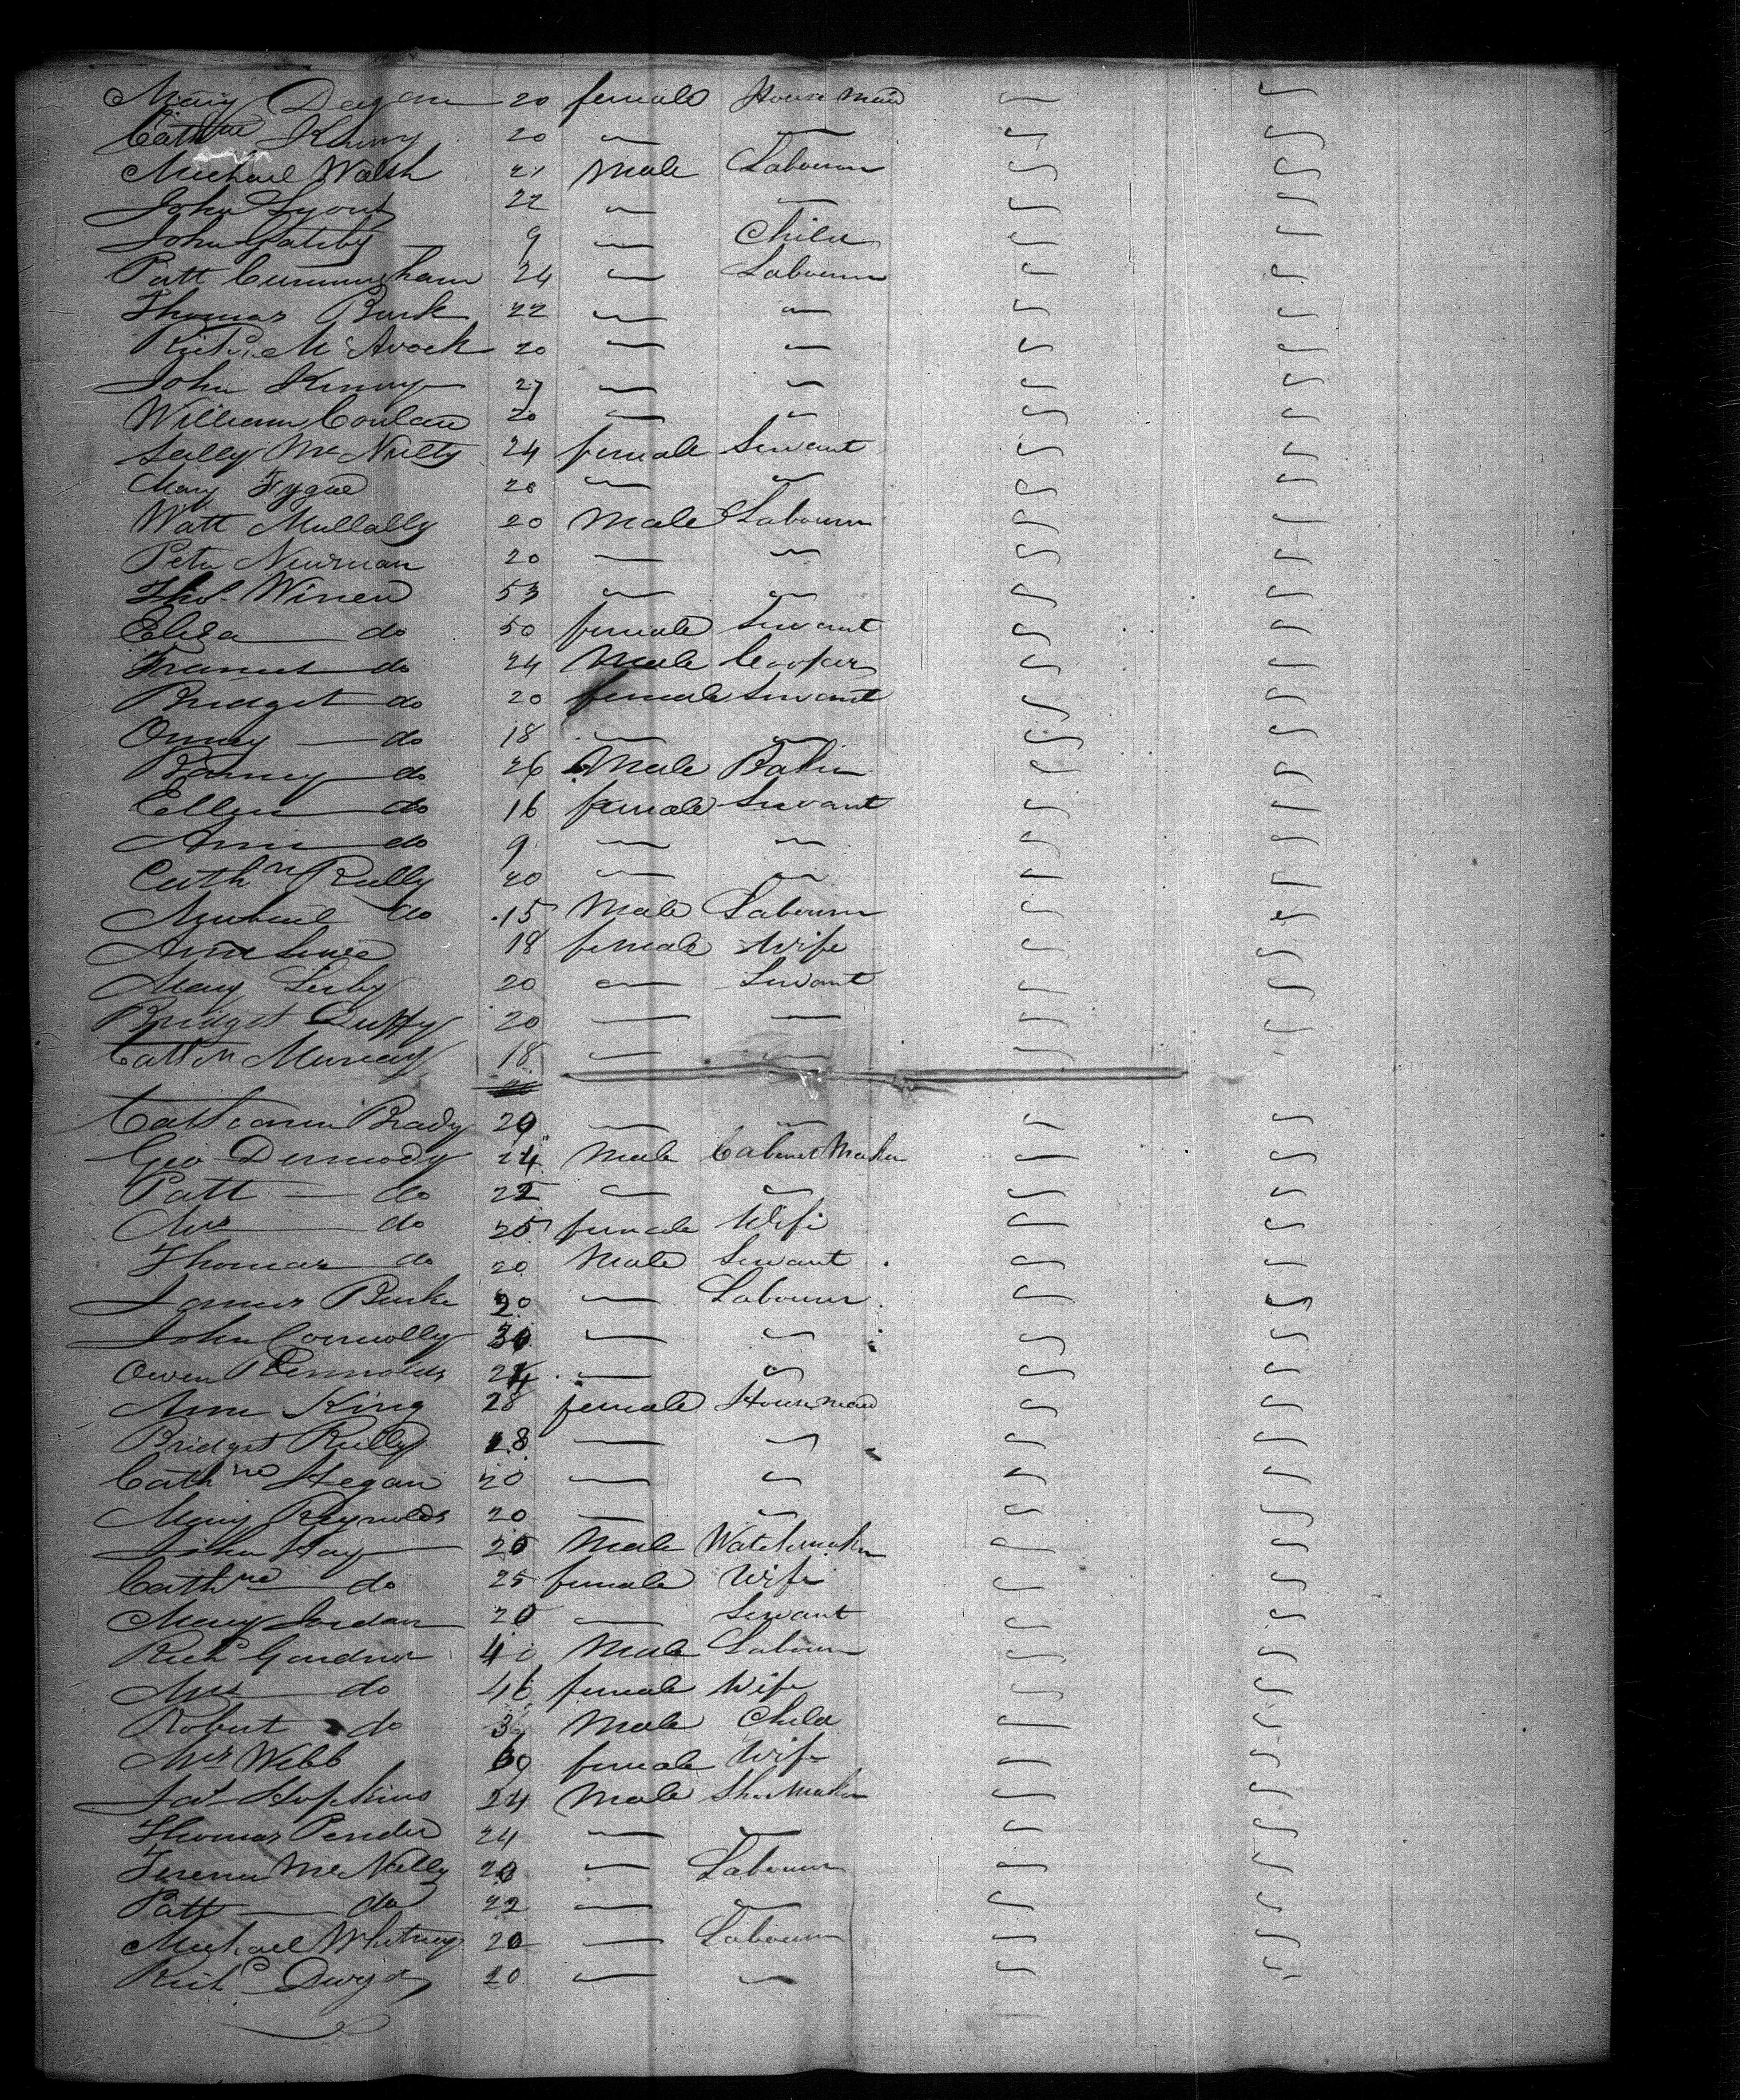 Mary Degan 20 female House Maid
Cathne Kenny 20 " "
Michael Walsh 21 Male Labourer
John Lyons 22 " "
John Gatsby 9 " Child
Patt Cunningham 24 " Labourer
Thomas Burk 22 " "
Richd McAvock 20 " "
John Kenny 27 " "
William Conlan 20 " "
Sally McNulty 24 female Servant
Mary 20 " "
Watt Mullally 20 Male Labourer
Peter Newman 20 " "
Thos Winen 53 " "
Eliza do 50 female Servant
Francis do 24 Male Cooper
Bridget do 20 female Servant
do 18 " "
Barney do 26 Male Baker
Ellen do 16 female Servant
Ann do 9 " "
Cathn Reilly 40 " "
Michael do 15 Male Labourer
Ann 18 female Wife
Mary 20 " Servant
Bridget Duffy 20 " "
Cathn Murray 18 " "
Catharin Brady 20 " "
Geo Dermody 24 Male Cabinet Maker
Patt do 22 " "
Mrs do 25 female Wife
Thomas do 20 Male Servant
James Burke 20 " Labourer
John Connolly 30 " "
Owen Rennolds 24 " "
Ann King 28 female House maid
Bridget Reilly 18 " "
Cathne Hegan 20 " "
Mary Reynolds 20 " "
John Hay 25 Male Watchmaker
Cathne do 25 female Wife
Mary Jordan 20 " Servant
Richd Gardner 40 Male Labourer
Mrs do 46 female Wife
Robert do 3 Male Child
Mrs Webb 60 female Wife
Jas Hopkins 24 Male Shoe Maker
Thomas Pender 24 " "
Terence McNally 20 " Labourer
Patt do 22 " "
Michael Whitney 20 " Labourer
Richd 20 " "